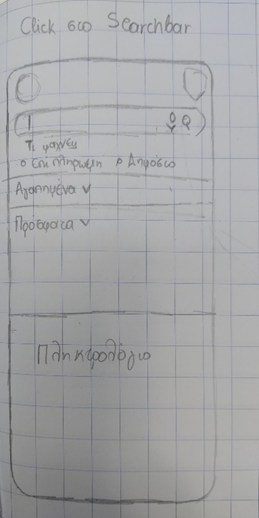 Click στο Searchbar
Τι ψάχνεις
Επί πληρωμή Δημόσιο
Αγαπημένα
Πρόσφατα
Πληκτρολόγιο